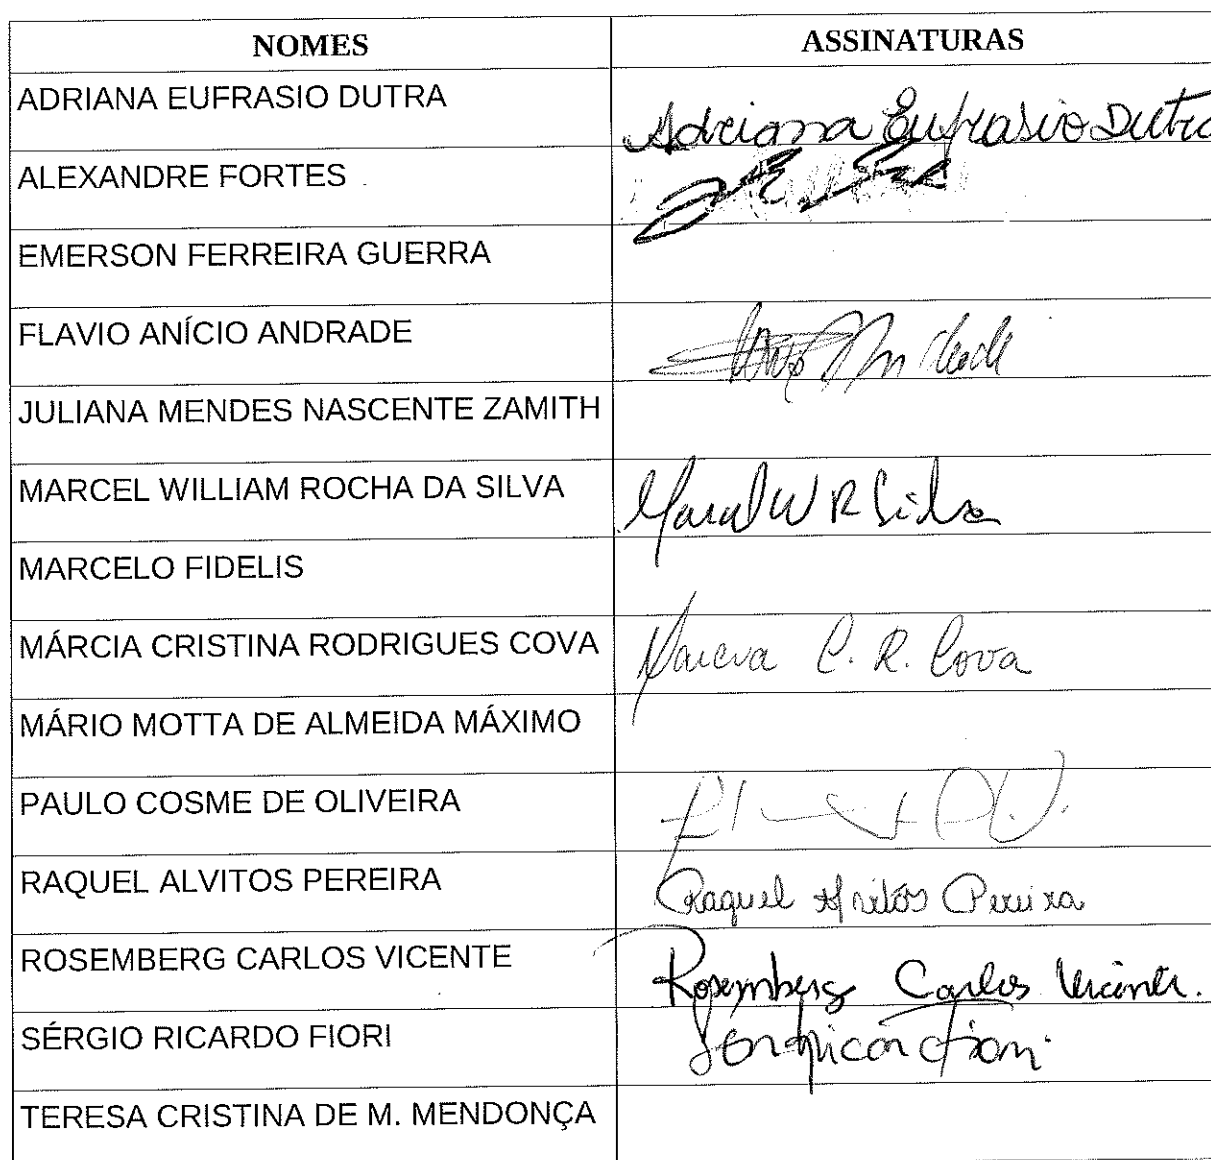 NOMES ASSINATURAS
ADRIANA EUFRASIO DUTRA Adriana Eufrasio Dutra
ALEXANDRE FORTES
EMERSON FERREIRA GUERRA
FLAVIO ANÍCIO ANDRADE
JULIANA MENDES NASCENTE ZAMITH
MARCEL WILLIAM ROCHA DA SILVA Marcel W R Silva
MARCELO FIDELIS
MÁRCIA CRISTINA RODRIGUES COVA Marcia C. R. Cova
MÁRIO MOTTA DE ALMEIDA MÁXIMO
PAULO COSME DE OLIVEIRA
RAQUEL ALVITOS PEREIRA Raquel Alvitos Pereira
ROSEMBERG CARLOS VICENTE Rosemberg Carlos Vicente.
SÉRGIO RICARDO FIORI
TERESA CRISTINA DE M. MENDONÇA